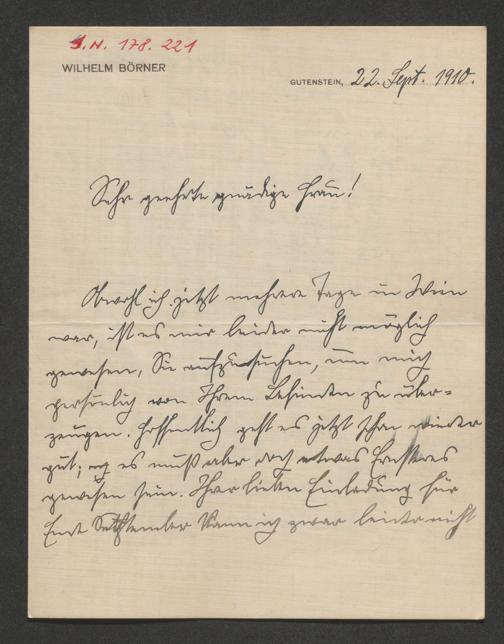 I.N. 178.221
WILHELM BÖRNER
GUTENSTEIN, 22. Sept. 1910.
Sehr geehrte gnädige Frau!
Obwohl ich jetzt mehrere Tage in Wien
war, ist es mir leider nicht möglich
gewesen, Sie aufzusuchen, um mich
persönlich von Ihrem Befinden zu über-
zeugen. Hoffentlich geht es jetzt schon wieder
gut; es muß aber doch etwas Ernsteres
gewesen sein. Ihrer lieben Einladung für
Ende September kann ich zwar leider nicht